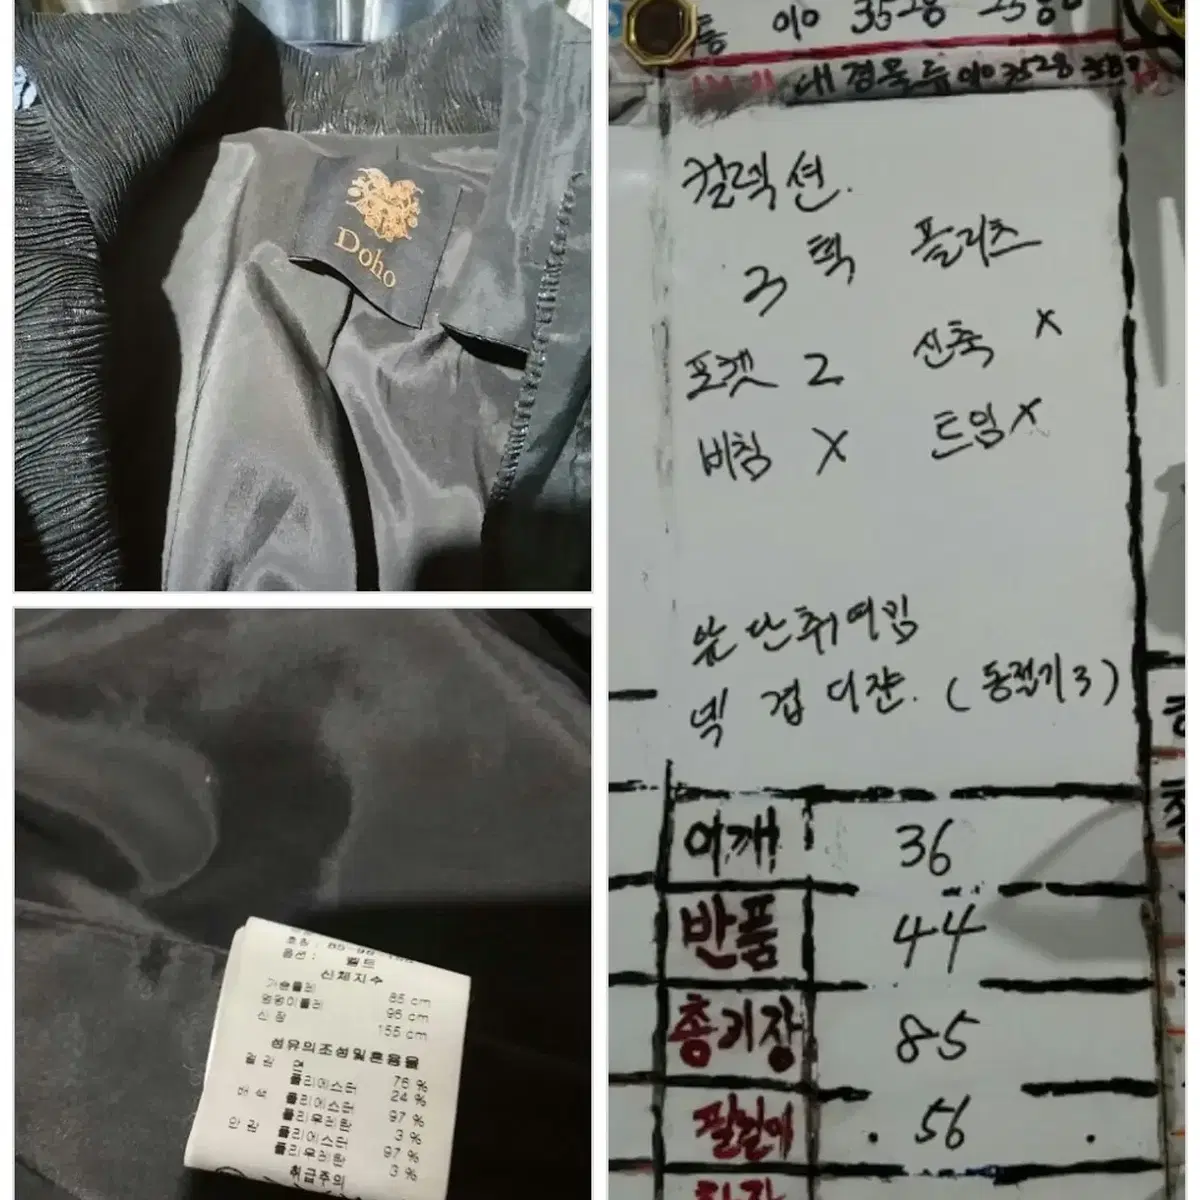 Doho
호칭 : 85-96-155
옵션 : 벨트
신체치수
가슴둘레 85 cm
엉덩이둘레 96 cm
신장 155 cm
섬유의조성및혼용율
모 76 %
폴리에스터 24 %
배색 폴리에스터 97 %
폴리우레탄 3 %
안감 폴리에스터 97 %
폴리우레탄 3 %
취급주의
통 이0 3528 2580
대경물류 이0 3528 3580
컬렉션.
3 헉 플리츠
포켓 2 신축 X
비침 X 트임 X
앞 단취여밈
넥 겹 디쟌. (동접기3)
어깨 36
반품 44
총기장 85
팔길이 56